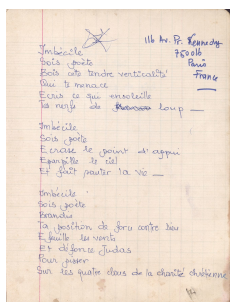 116 Av. Pr. Kennedy
75016
Paris
France
Imbécile
Sois poète
Bois cette tendre verticalité
Qui te menace
Ecris ce qui ensoleille
Tes nerfs de loup —
Imbécile
Sois poète
Ecrase le point d'appui
Eparpille le ciel
Et fait sauter la vie —
Imbécile
Sois poète
Brandis
Ta position de contre
Effeuille les vents
Et défonce Judas
Pour pisser
Sur les quatre clous de la charité chrétienne